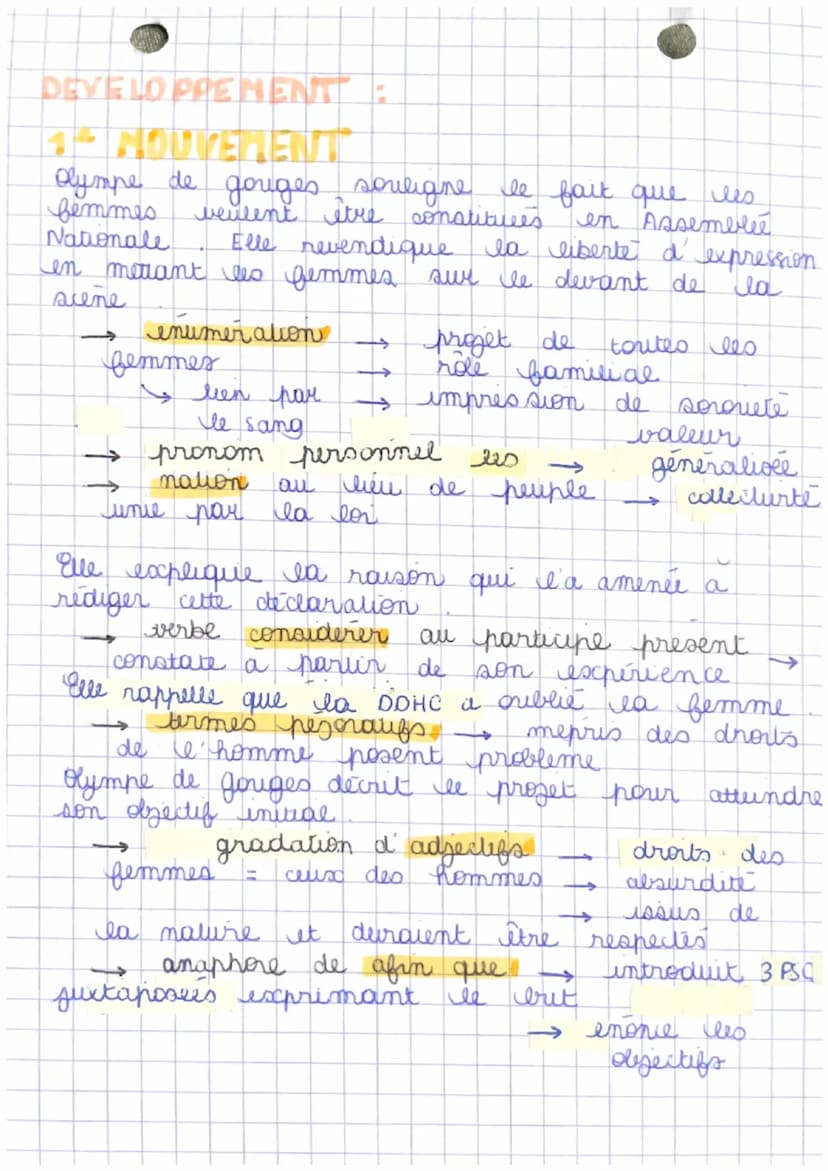 DEVELOPPEMENT :
1er MOUVEMENT
Olympe de gouges souligne le fait que les
femmes veulent être constituées en Assemblée
Nationale. Elle revendique la liberté d'expression
en mettant les femmes sur le devant de la
scène
→ énumération → projet de toutes les
femmes → rôle familial
↳ lien par → impression de sororité
le sang valeur
→ pronom personnel les → généralisée
→ nation au lieu de peuple → collectivité
unie par la loi
Elle explique la raison qui l'a amenée à
rédiger cette déclaration.
→ verbe considérer au participe présent →
constate à partir de son expérience
Elle rappelle que la DDHC a oublié la femme.
→ termes péjoratifs → mépris des droits
de l'homme posent problème
Olympe de gouges décrit le projet pour atteindre
son objectif initial.
→ gradation d'adjectifs → droits des
femmes = ceux des hommes → absurdité
→ issus de
la nature et devraient être respectés
→ anaphore de afin que → introduit 3 PSC
juxtaposées exprimant le but
→ énonce les
objectifs